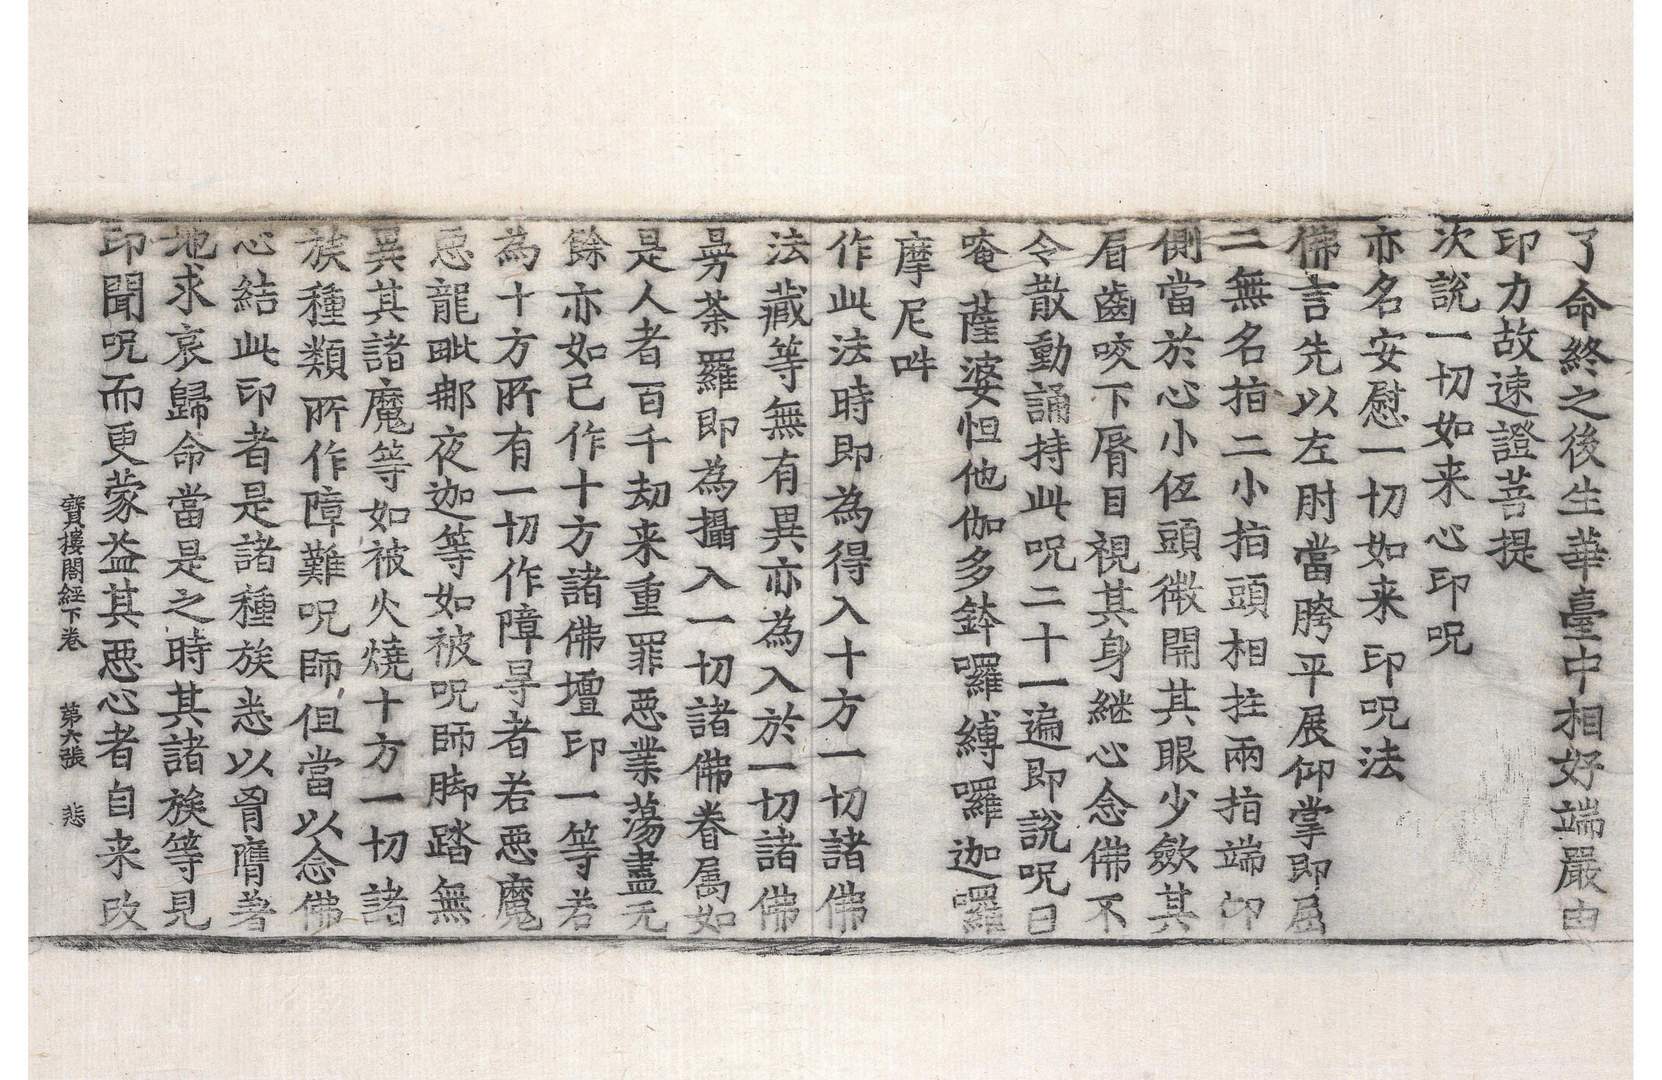 了命終之後生華臺中相好端嚴由
印力故速證菩提
次說一切如来心印呪
亦名安慰一切如来印呪法
佛言先以左肘當胯平展仰掌即屈
二無名指二小指頭相拄兩指端仰
側當於心小伍頭微開其眼少歛其
眉齒咬下脣目視其身継心念佛不
令散動誦持此呪二十一遍即說呪曰
唵 薩婆怛他伽多鉢囉縛囉迦囉
摩尼吽
作此法時即為得入十方一切諸佛
法藏等無有異亦為入於一切諸佛
曼荼羅即為攝入一切諸佛眷属如
是人者百千劫来重罪惡業蕩盡无
餘亦如已作十方諸佛壇印一等若
為十方所有一切作障导者若惡魔
惡龍毗那夜迦等如被呪師脚踏無
異其諸魔等如被火燒十方一切諸
族種類所作障難呪師但當以念佛
心結此印者是諸種族悉以胷膺著
地求哀歸命當是之時其諸族等見
印聞呪而更蒙益其惡心者自来改
寶樓閣經下卷 第六張 悲